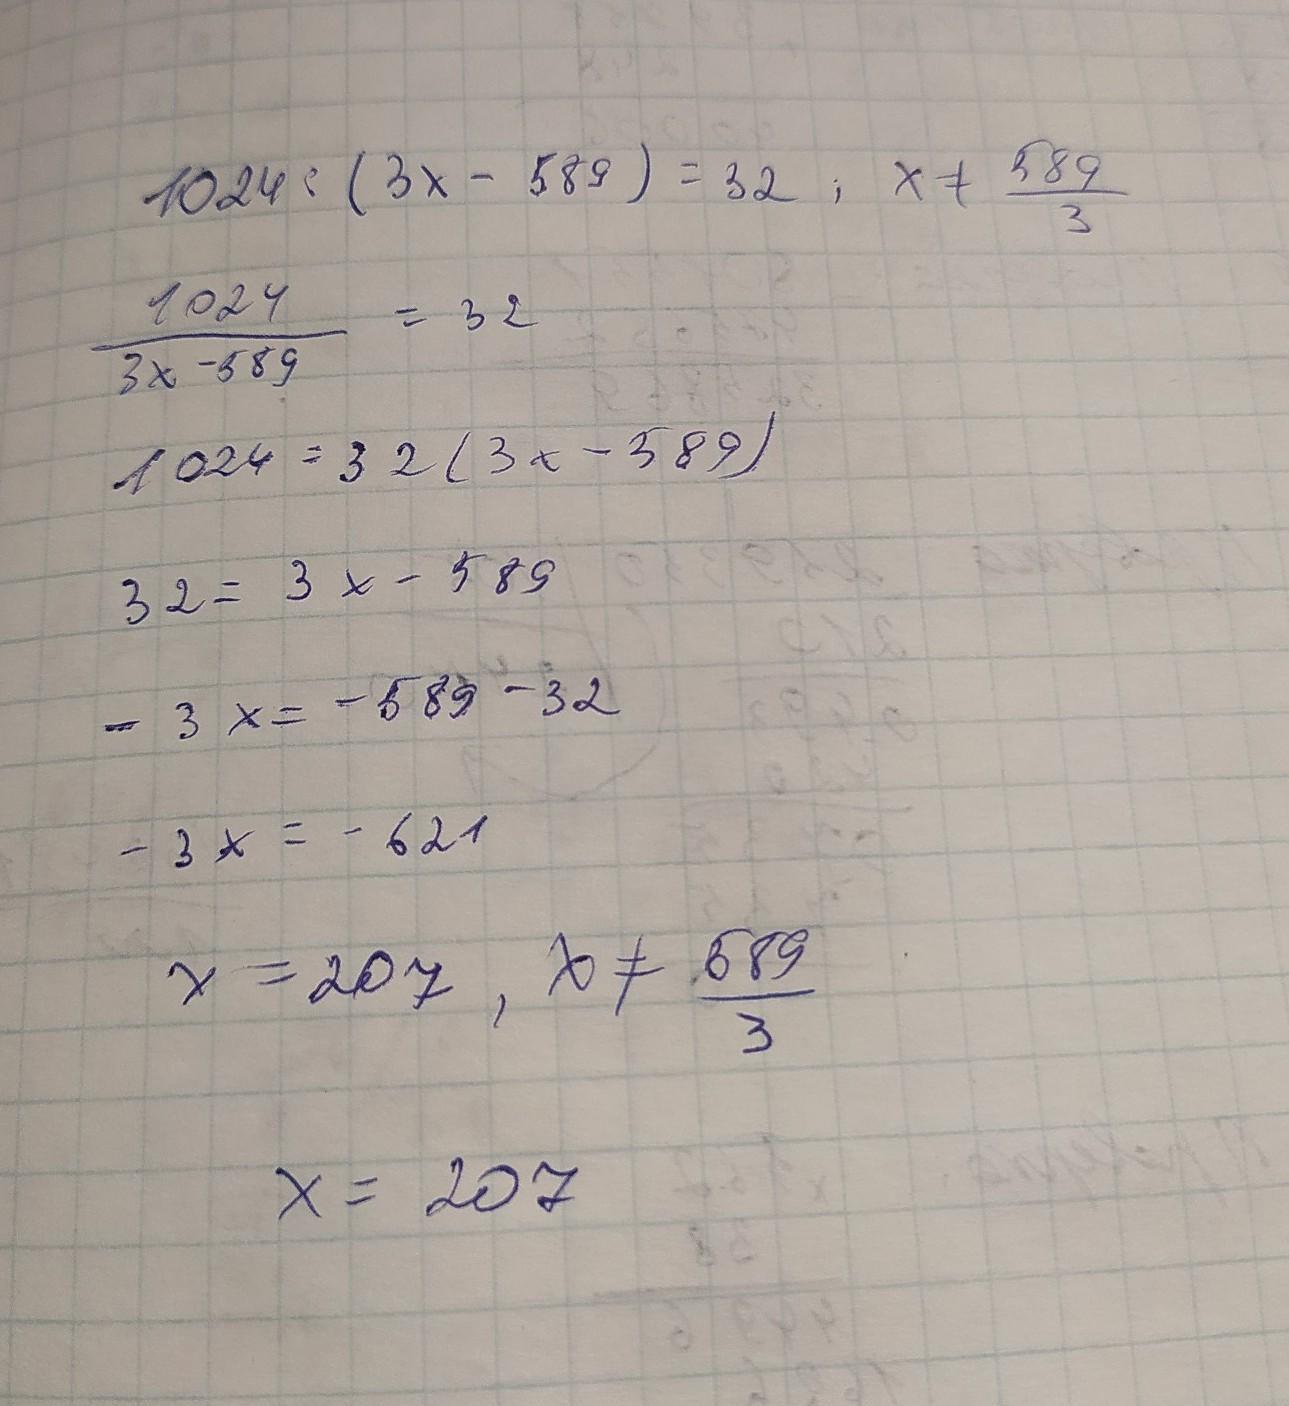 1024 : (3x - 589) = 32 ; x ≠ 589/3
1024/(3x - 589) = 32
1024 = 32(3x - 589)
32 = 3x - 589
- 3x = - 589 - 32
- 3x = - 621
x = 207 , x ≠ 589/3
x = 207